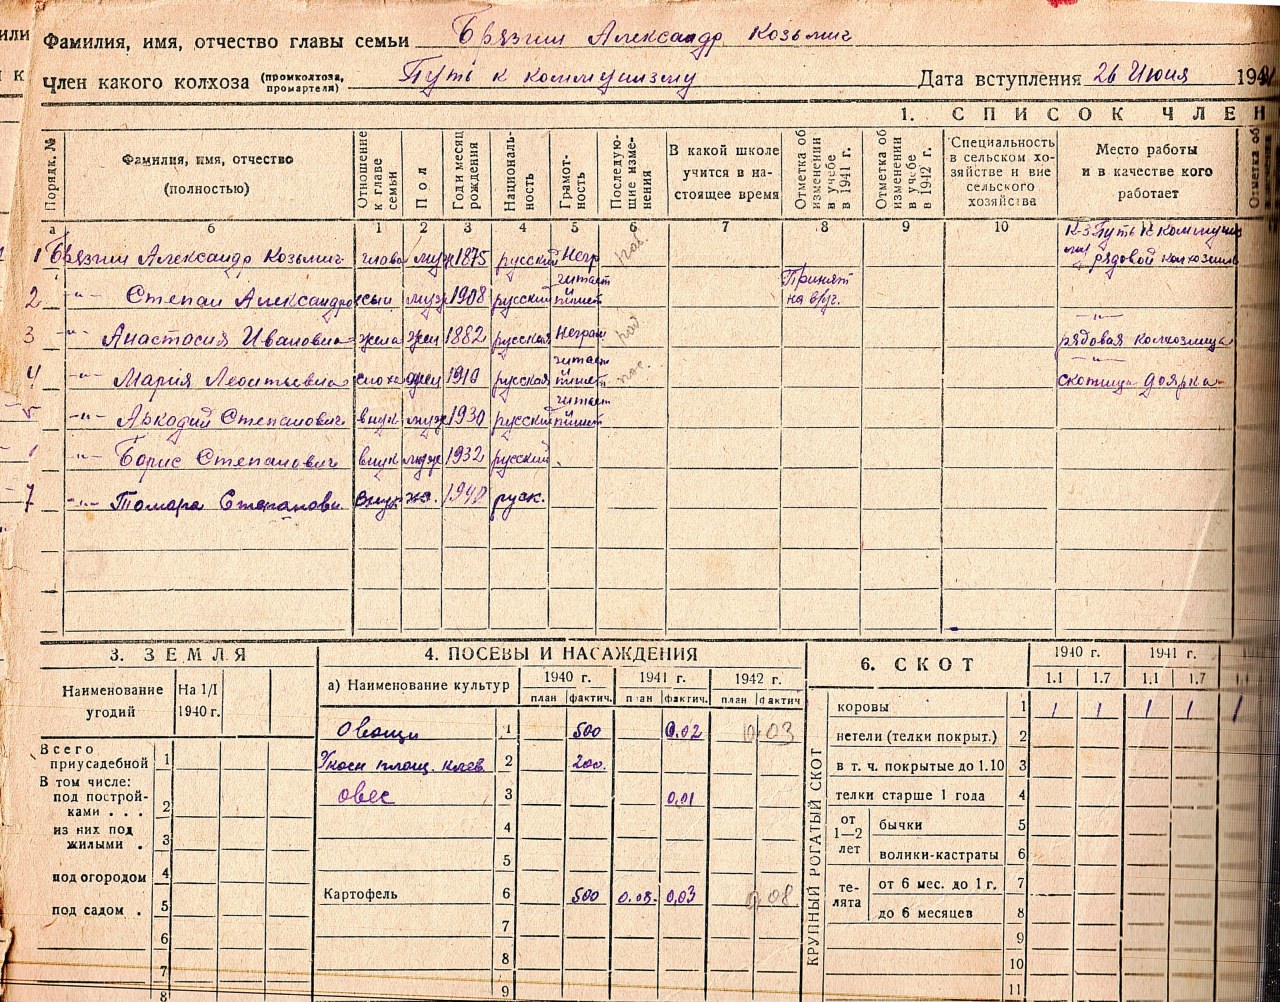 или
Фамилия, имя, отчество главы семьи Брязгин Александр Козьмич
к
Член какого колхоза (промколхоза, промартели) Путь к коммунизму Дата вступления 26 Июня 194
1. СПИСОК ЧЛЕН
Порядк. № Фамилия, имя, отчество (полностью) Отношение к главе семьи Пол Год и месяц рождения Националь-ность Грамот-ность Последую-щие изме-нения В какой школе учится в на-стоящее время Отметка об изменении в учебе в 1941 г. Отметка об изменении в учебе в 1942 г. Специальность в сельском хо-зяйстве и вне сельского хозяйства Место работы и в качестве кого работает Отметка об
а б 1 2 3 4 5 6 7 8 9 10 11
1 Брязгин Александр Козьмич глава муж 1875 русский Негр К-з Путь к коммуни рядовой колхозник
2 -"- Степан Александро сын муж 1908 русский читает пишет Принят на в/уч.
3 -"- Анастасия Ивановна жена жен 1882 русская Неграм -"- рядовая колхозница
4 -"- Мария Леонтьевна сноха жен 1910 русская читает пишет -"- скотница доярка
5 -"- Аркадий Степанович внук муж 1930 русский читает пишет
-"- Борис Степанович внук муж 1932 русский
7 -"- Томара Степановн Внук жэ. 1940 руск.
3. ЗЕМЛЯ
Наименование угодий На 1/I 1940 г.
Всего приусадебной 1
В том числе:
под построй-ками . . . 2
из них под жилыми . 3
под огородом 4
под садом . 5
6
7
8
4. ПОСЕВЫ И НАСАЖДЕНИЯ
а) Наименование культур 1940 г. 1941 г. 1942 г.
план фактич. план фактич. план фактич
Овощи 1 500 0.02 0.03
Укосн площ. клев. 2 200.
овес 3 0,01
4
5
Картофель 6 500 0.08. 0,03 0,08
7
8
9
6. СКОТ 1940 г. 1941 г.
1.1 1.7 1.1 1.7
КРУПНЫЙ РОГАТЫЙ СКОТ
коровы 1 1 1 1 1 1
нетели (телки покрыт.) 2
в т. ч. покрытые до 1.10 3
телки старше 1 года 4
от 1—2 лет бычки 5
волики-кастраты 6
те-лята от 6 мес. до 1 г. 7
до 6 месяцев 8
9
10
11